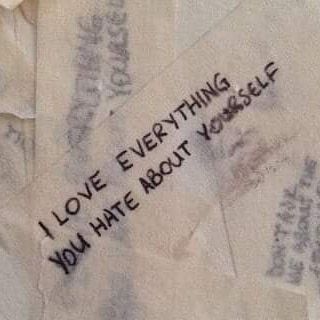 I LOVE EVERYTHING
YOU HATE ABOUT YOURSELF
YOURSELF
DON'T
ME ABOUT THE